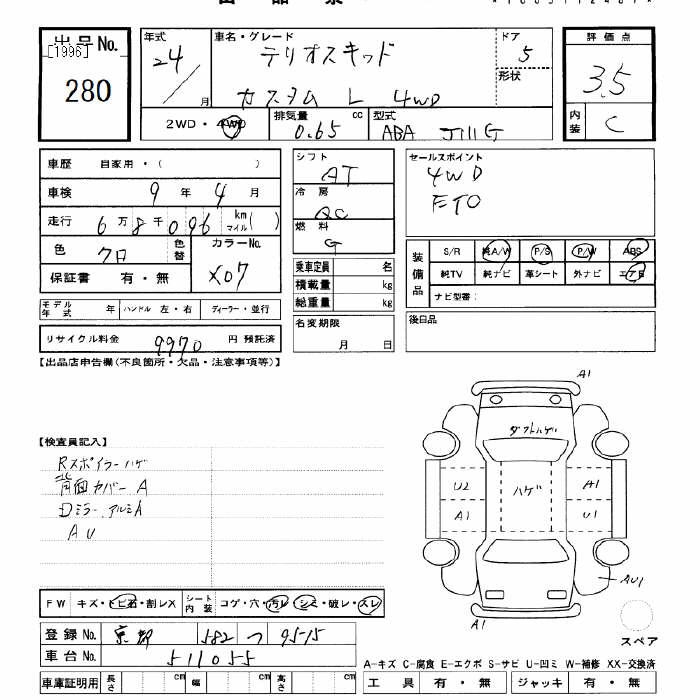 出品No.
[1996]
280
年式
24/
月
車名・グレード
テリオスキッド
カスタム L 4WD
ドア
5
形状
評価点
3.5
内装
C
2WD・4WD
排気量
0.65
cc
型式
ABA J111G
車歴 自家用・( )
車検 9年 4月
走行 6万8千096 km マイル( )
色 クロ
色替
カラーNo.
X07
保証書 有・無
モデル年式 年 ハンドル 左・右 ディーラー・並行
リサイクル料金 9970 円 預託済
シフト
AT
冷房
燃料
G
乗車定員 名
積載量 kg
総重量 kg
名変期限
月 日
セールスポイント
4WD
ETC
装備品
S/R 純A/W P/S P/W ABS
純TV 純ナビ 革シート 外ナビ エアB
ナビ型番:
後日品
【出品店申告欄(不良箇所・欠品・注意事項等)】
【検査員記入】
Rスポイラーハゲ
背面カバーA
Dミラー アルミA
AU
A1
ダクトハゲ
U2
ハゲ
A1
A1
U1
AU1
A1
スペア
FW キズ・トビ石・割レX
シート内装 コゲ・穴・汚レ・シミ・破レ・スレ
登録No. 京都 582 つ 95-15
車台No. 511055
車庫証明用 長さ cm 幅 cm 高さ cm
A-キズ C-腐食 E-エクボ S-サビ U-凹ミ W-補修 XX-交換済
工具 有・無 ジャッキ 有・無